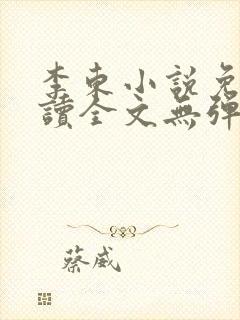 李東小說免
讀全文無彈
蔡威